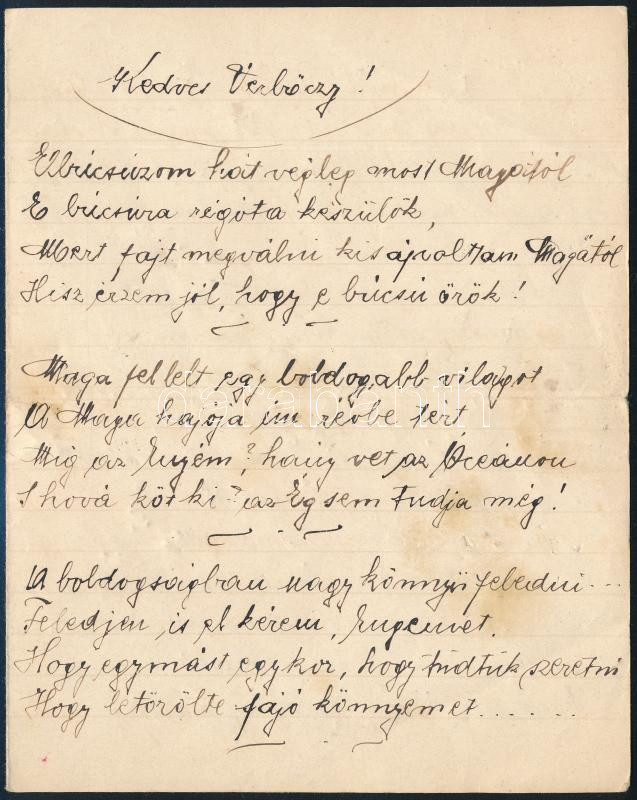 Kedves Verbőczy!
Elbúcsúzom hát végleg most Magától
E búcsúra régóta készülök,
Mert fájt megválni kis ápoltam Magától
Hisz érzem jól, hogy e búcsú örök!
Maga fellelt egy boldogabb világot
A Maga hajója ím révbe tért
Míg az Enyém? hány vet az Oceánon
S hová köt ki? az Ég sem tudja még!
A boldogságban nagy könnyű feledni...
Feledjen is el kérem, Engemet.
Hogy egymást egykor, hogy tudtuk szeretni
Hogy letörölte fájó könnyemet.......
darabanth